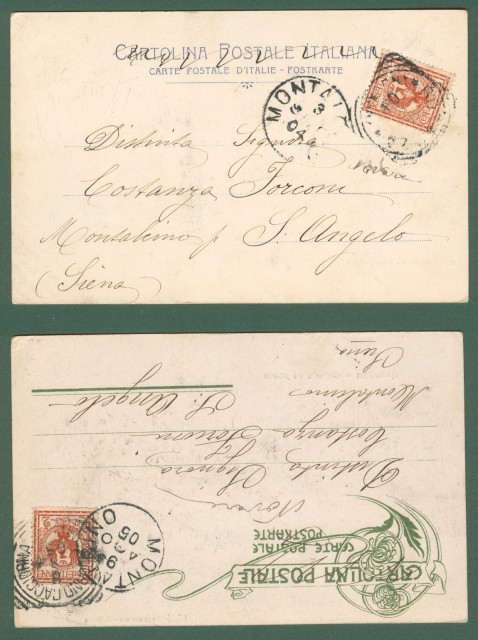 CARTOLINA POSTALE ITALIANA
CARTE POSTALE D'ITALIE - POSTKARTE
MONTAL
04
Distinta Signora
Costanza Forconi
Montalcino p S. Angelo
(Siena)
CARTOLINA POSTALE
CARTE POSTALE
POSTKARTE
Distinta Signora
Costanza Forconi
S. Angelo
Montalcino
Siena
MONTALCINO
05